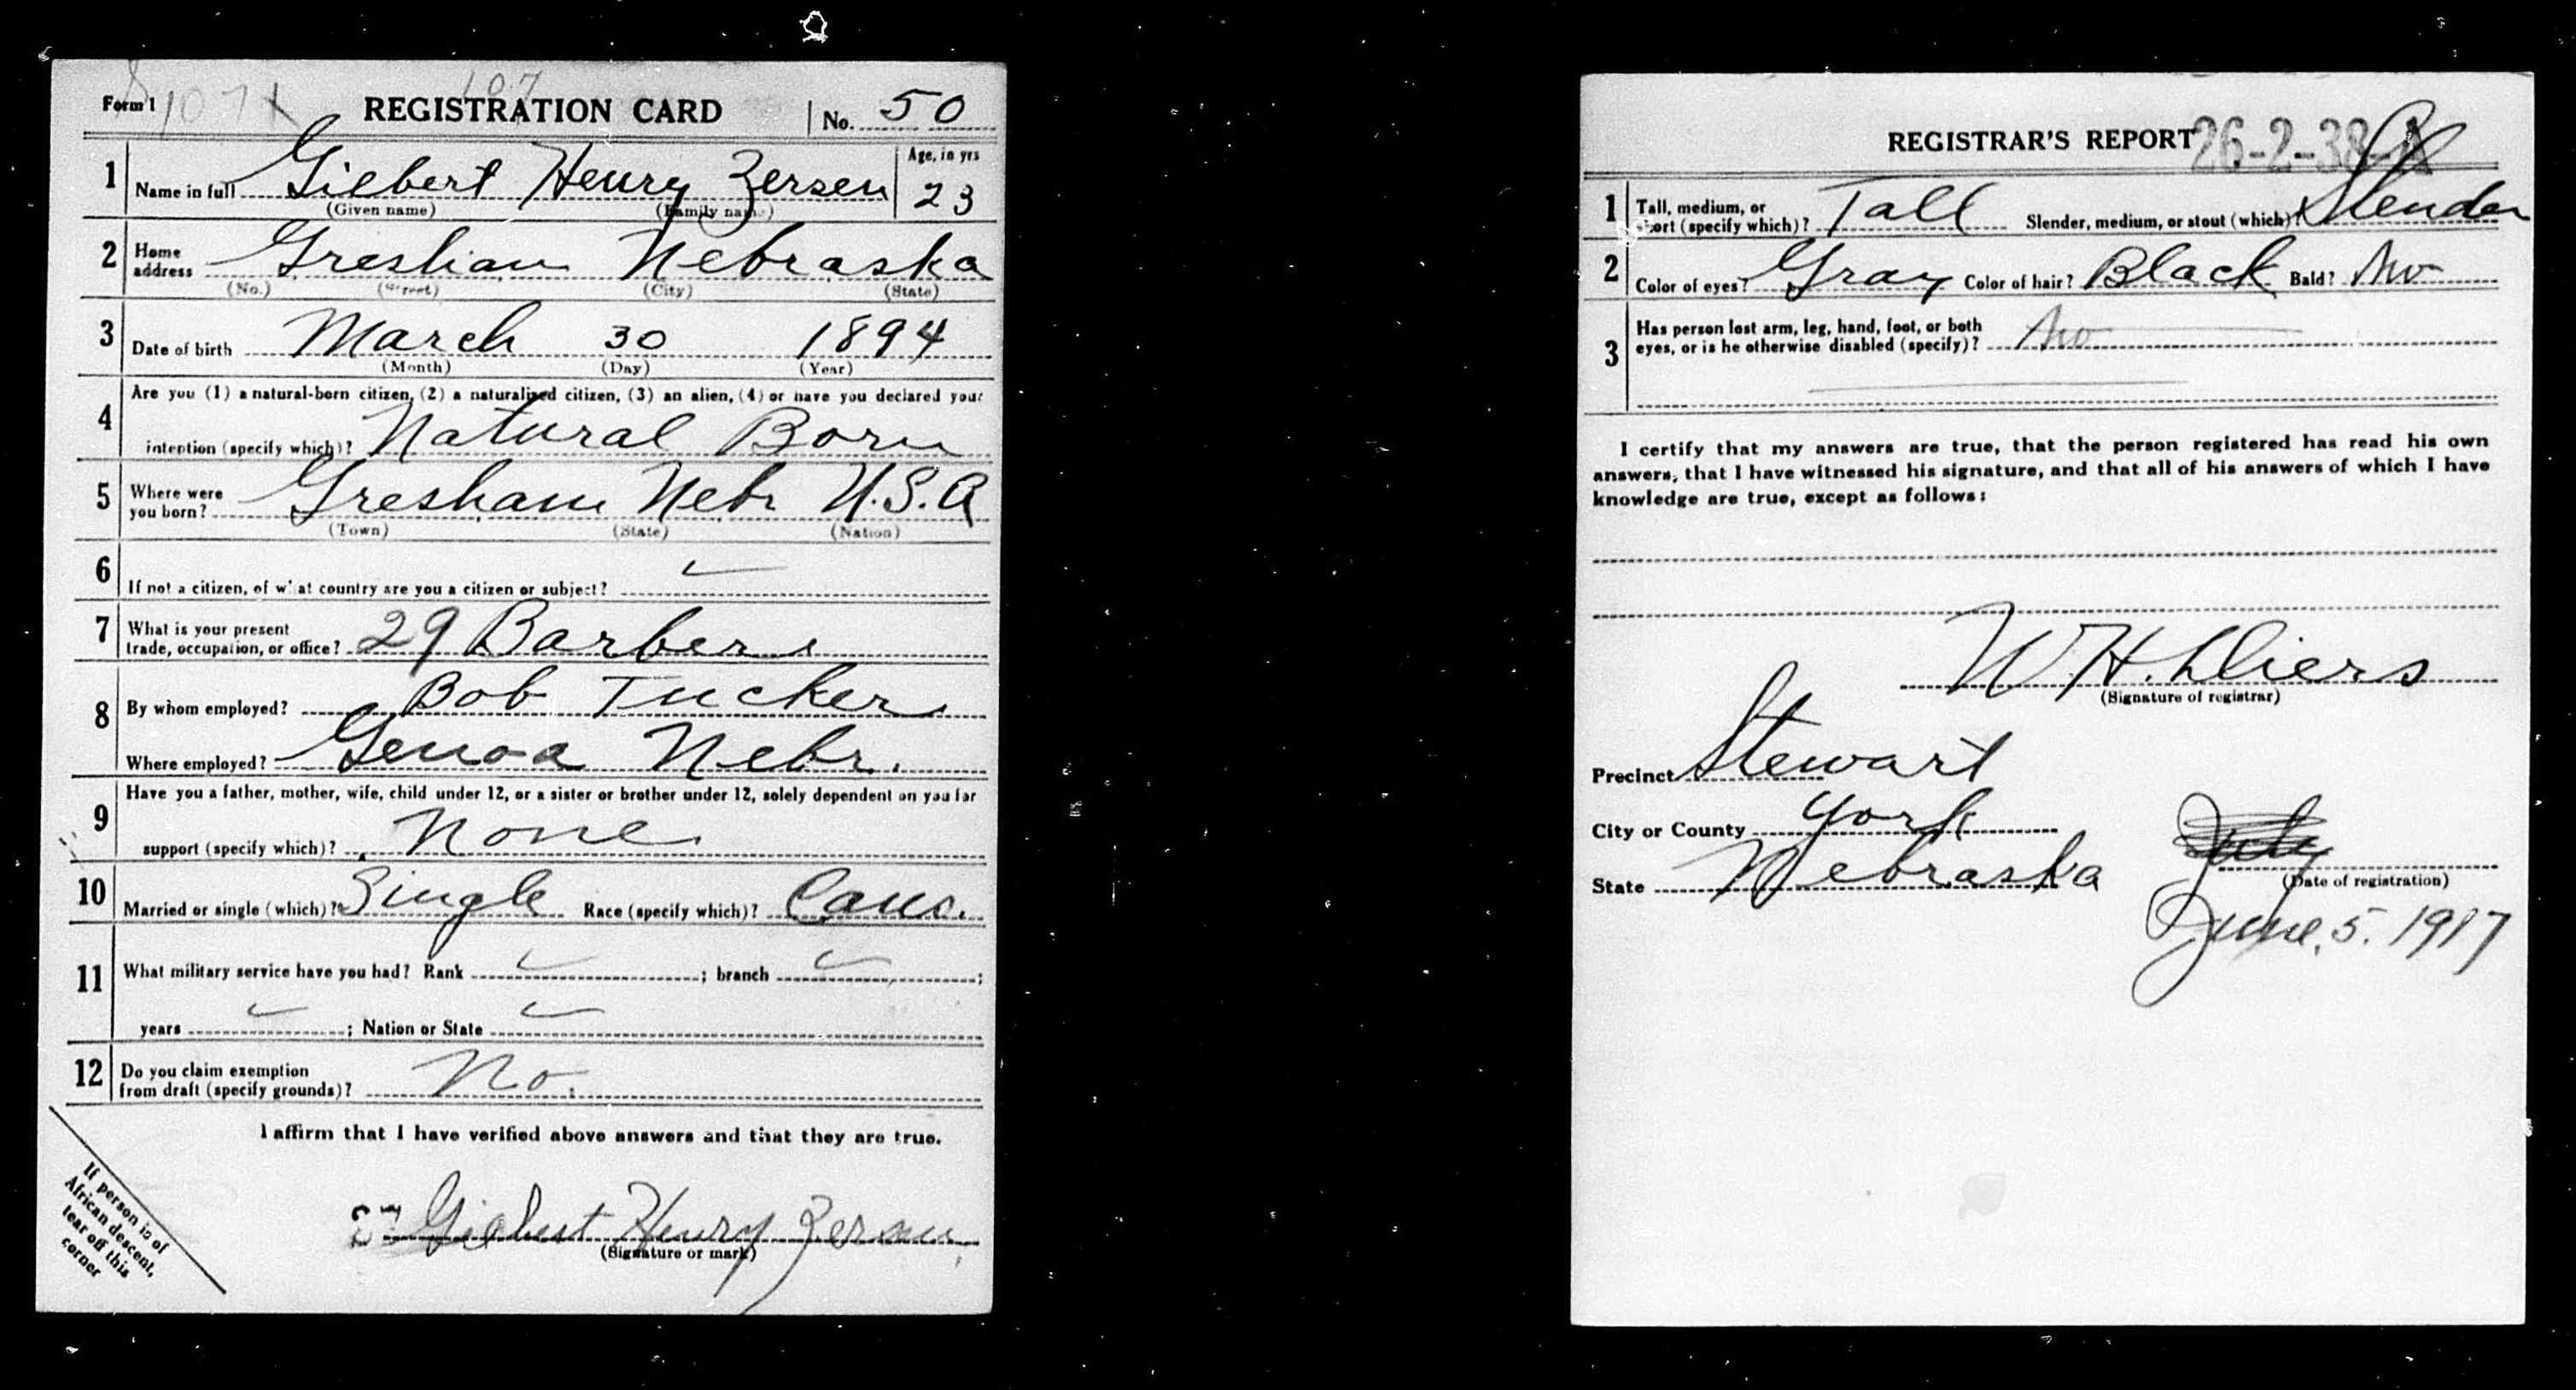 107
Form 1 1071 REGISTRATION CARD No. 50
1 Name in full Giebert Henry Zersen Age, in yrs 23
(Given name) (Family name)
2 Home address Gresham Nebraska
(No.) (Street) (City) (State)
3 Date of birth March 30 1894
(Month) (Day) (Year)
4 Are you (1) a natural-born citizen, (2) a naturalized citizen, (3) an alien, (4) or have you declared your
intention (specify which)? Natural Born
5 Where were you born? Gresham Nebr U.S.A
(Town) (State) (Nation)
6 If not a citizen, of what country are you a citizen or subject?
7 What is your present
trade, occupation, or office? 29 Barber
8 By whom employed? Bob Tucker
Where employed? Genoa Nebr.
9 Have you a father, mother, wife, child under 12, or a sister or brother under 12, solely dependent on you for
support (specify which)? None
10 Married or single (which)? Single Race (specify which)? Cauc.
11 What military service have you had? Rank ; branch ;
years ; Nation or State
12 Do you claim exemption
from draft (specify grounds)? No.
I affirm that I have verified above answers and that they are true.
Giebert Henry Zersen
(Signature or mark)
If person is of
African descent,
tear off this
corner
REGISTRAR'S REPORT 26-2-38-A
1 Tall, medium, or
short (specify which)? Tall Slender, medium, or stout (which)? Slender
2 Color of eyes? Gray Color of hair? Black Bald? No
3 Has person lost arm, leg, hand, foot, or both
eyes, or is he otherwise disabled (specify)? No
I certify that my answers are true, that the person registered has read his own
answers, that I have witnessed his signature, and that all of his answers of which I have
knowledge are true, except as follows:
W. H. Diers
(Signature of registrar)
Precinct Stewart
City or County York
State Nebraska July
(Date of registration)
June. 5. 1917